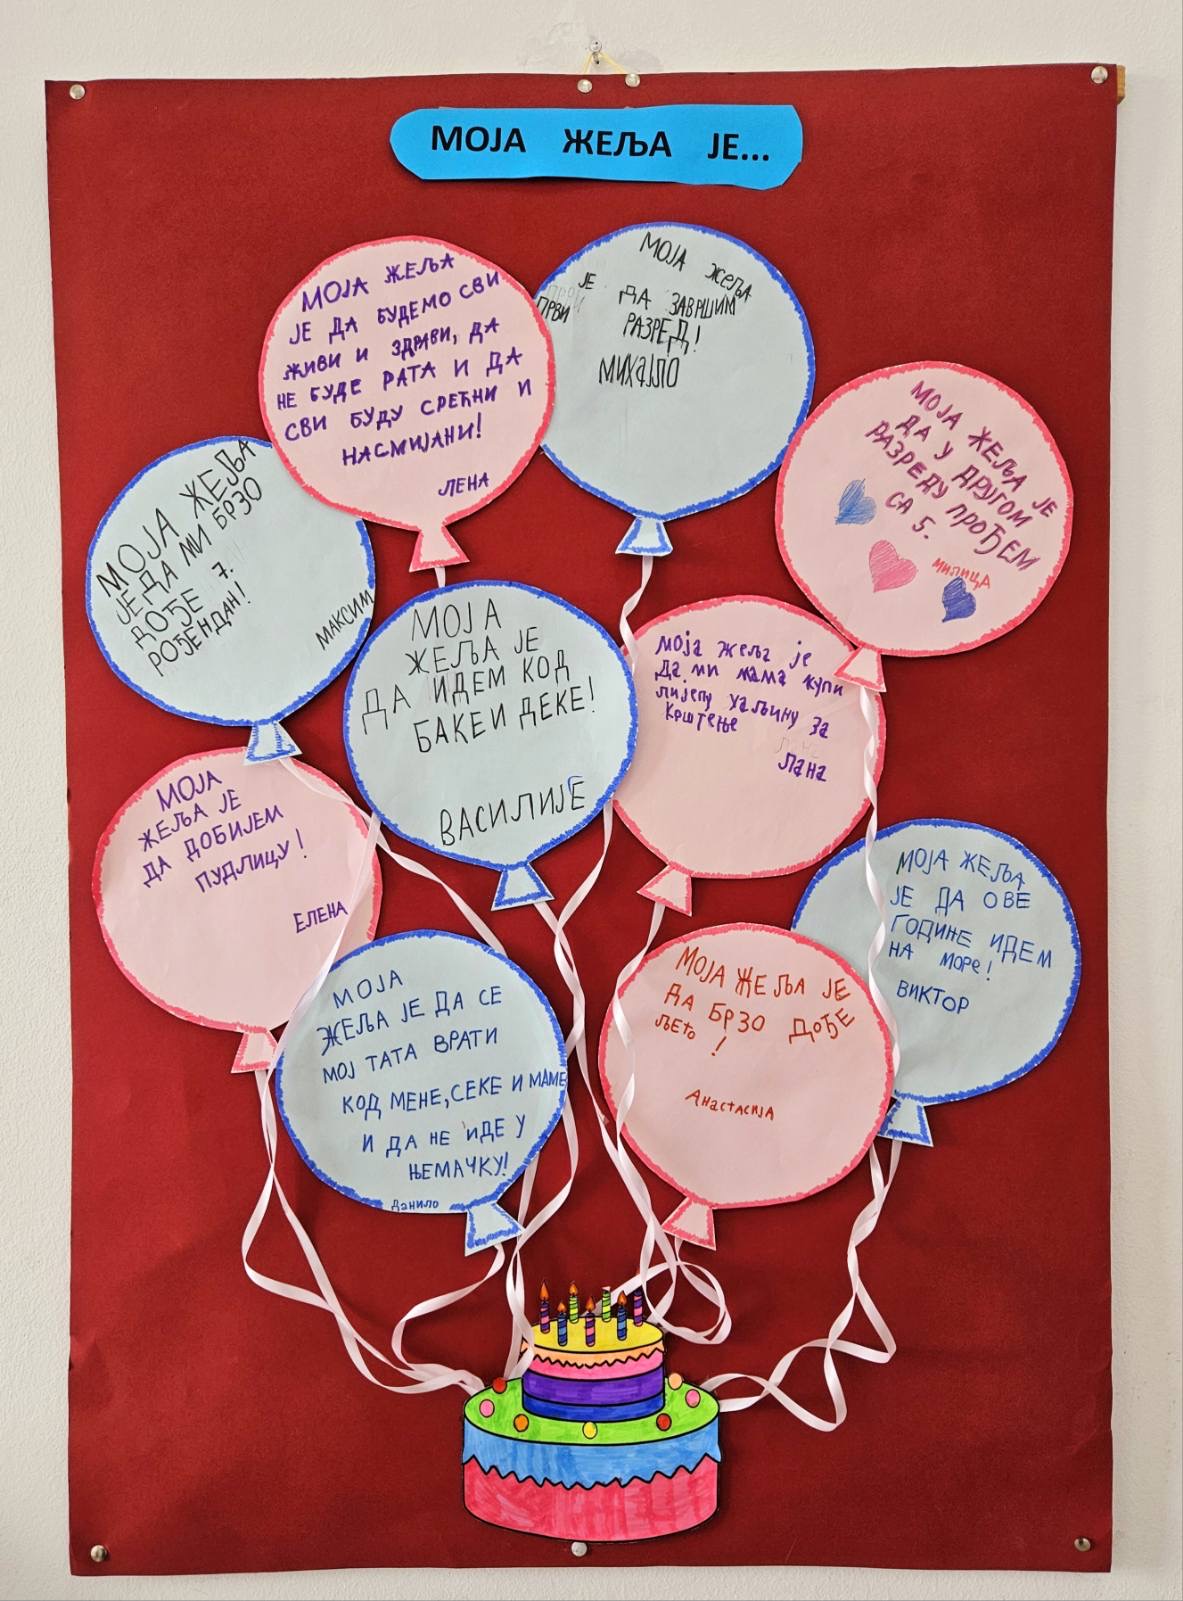 МОЈА ЖЕЉА ЈЕ...
МОЈА ЖЕЉА
ЈЕ ДА БУДЕМО СВИ
ЖИВИ И ЗДРАВИ, ДА
НЕ БУДЕ РАТА И ДА
СВИ БУДУ СРЕЋНИ И
НАСМИЈАНИ!
ЛЕНА
МОЈА ЖЕЉА
ЈЕ ДА ЗАВРШИМ
ПРВИ РАЗРЕД!
МИХАЈЛО
МОЈА ЖЕЉА ЈЕ
ДА У ДРУГОМ
РАЗРЕДУ ПРОЂЕМ
СА 5.
МИЛИЦА
МОЈА ЖЕЉА
ЈЕ ДА МИ БРЗО
ДОЂЕ 7.
РОЂЕНДАН!
МАКСИМ
МОЈА
ЖЕЉА ЈЕ
ДА ИДЕМ КОД
БАКЕ И ДЕКЕ!
ВАСИЛИЈЕ
моја жеља је
Да ми мама купи
лијепу хаљину за
Крштење
Лана
МОЈА
ЖЕЉА ЈЕ
ДА ДОБИЈЕМ
ПУДЛИЦУ!
ЕЛЕНА
МОЈА ЖЕЉА
ЈЕ ДА ОВЕ
ГОДИНЕ ИДЕМ
НА МОРЕ!
ВИКТОР
МОЈА
ЖЕЉА ЈЕ ДА СЕ
МОЈ ТАТА ВРАТИ
КОД МЕНЕ, СЕКЕ И МАМЕ
И ДА НЕ ИДЕ У
ЊЕМАЧКУ!
Данило
МОЈА ЖЕЉА ЈЕ
ДА БРЗО ДОЂЕ
ЉЕТО !
Анастасија